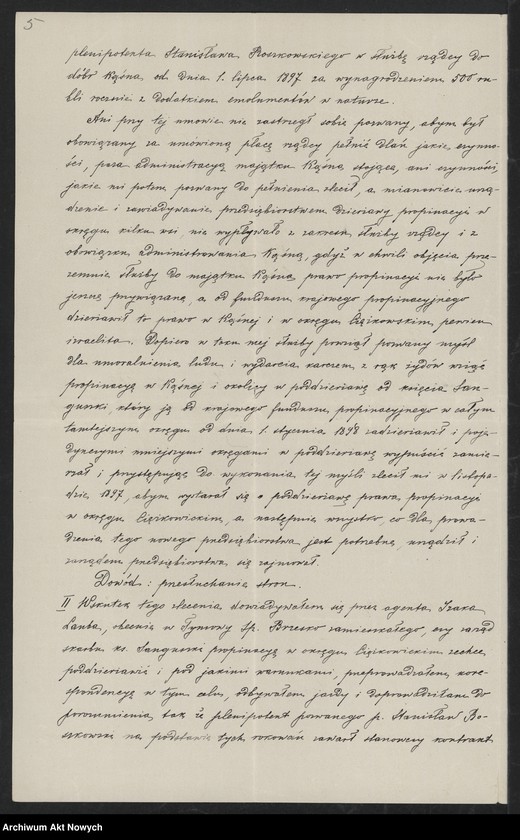 5
plenipotenta Stanisława Roszkowskiego w służbę rządcy do
dóbr Kąśna od dnia 1. lipca 1897 za wynagrodzeniem 500 ru-
bli rocznie z dodatkiem emolumentów w naturze.
Ani przy tej umowie nie zastrzegł sobie pozwany, abym był
obowiązany za umówioną płacę rządcy pełnić dlań jakie czynno-
ści, poza administracyą majątku Kąśna stojące, ani czynności,
jakie mi potem pozwany do pełnienia zlecił, a mianowicie urzą-
dzenie i zawiadywanie przedsiębiorstwem dzierżawy propinacyi w
okręgu kilku wsi, nie wypływało z zakresu służby rządcy i z
obowiązku administrowania Kąśną, gdyż w chwili objęcia prze-
zemnie służby do majątku Kąśna prawo propinacyi nie było
jeszcze przywiązane, a od funduszu krajowego propinacyjnego
dzierżawił to prawo w Kąśnej i w okręgu Ciężkowickim pewien
izraelita. Dopiero w toku mej służby powziął pozwany myśl
dla umoralnienia ludu i wydarcia karczem z rąk żydów wziąć
propinacyę w Kąśnej i okolicy w poddzierżawę od księcia San-
guszki który ją od krajowego funduszu propinacyjnego w całym
tamtejszym okręgu od dnia 1. stycznia 1898 zadzierżawił i poje-
dynczymi mniejszymi okręgami w poddzierżawę wypuścić zamie-
rzał i przystępując do wykonania tej myśli zlecił mi w listopa-
dzie 1897, abym wystarał się o poddzierżawę prawa propinacyi
w okręgu Ciężkowickim, a następnie wszystko, co dla prowa-
dzenia tego nowego przedsiębiorstwa jest potrzebne, urządził i
zarządem przedsiębiorstwa się zajmował.
Dowód: przesłuchania stron.
II Wskutek tego zlecenia dowiadywałem się przez agenta Izaka
Lauba, obecnie w Tymowy Sp. Brzesko zamieszkałego, czy zarząd
skarbu ks. Sanguszki propinacyę w okręgu Ciężkowickim zechce
poddzierżawić i pod jakimi warunkami, przeprowadziłem kore-
spondencyę w tym celu, odbywałem jazdy i doprowadziłem do
porozumienia, tak że plenipotent pozwanego p. Stanisław Ro-
szkowski na podstawie tych rokowań zawarł stanowczy kontrakt
Archiwum Akt Nowych